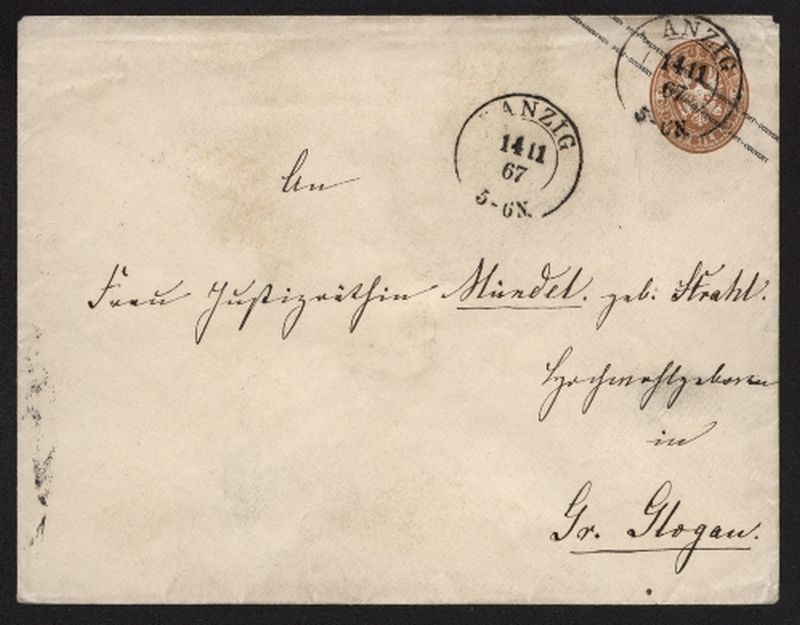 LANZIG
14 11
67
5-6N.
ANZIG
14 11
67
5-6N.
An
Frau Justizräthin Mündel. geb. Strahl.
Hochwohlgeboren
in
Gr. Glogau.